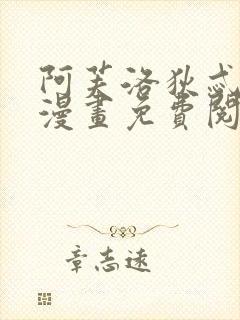 阿芙洛狄忒
漫畫免費閱
章志遠